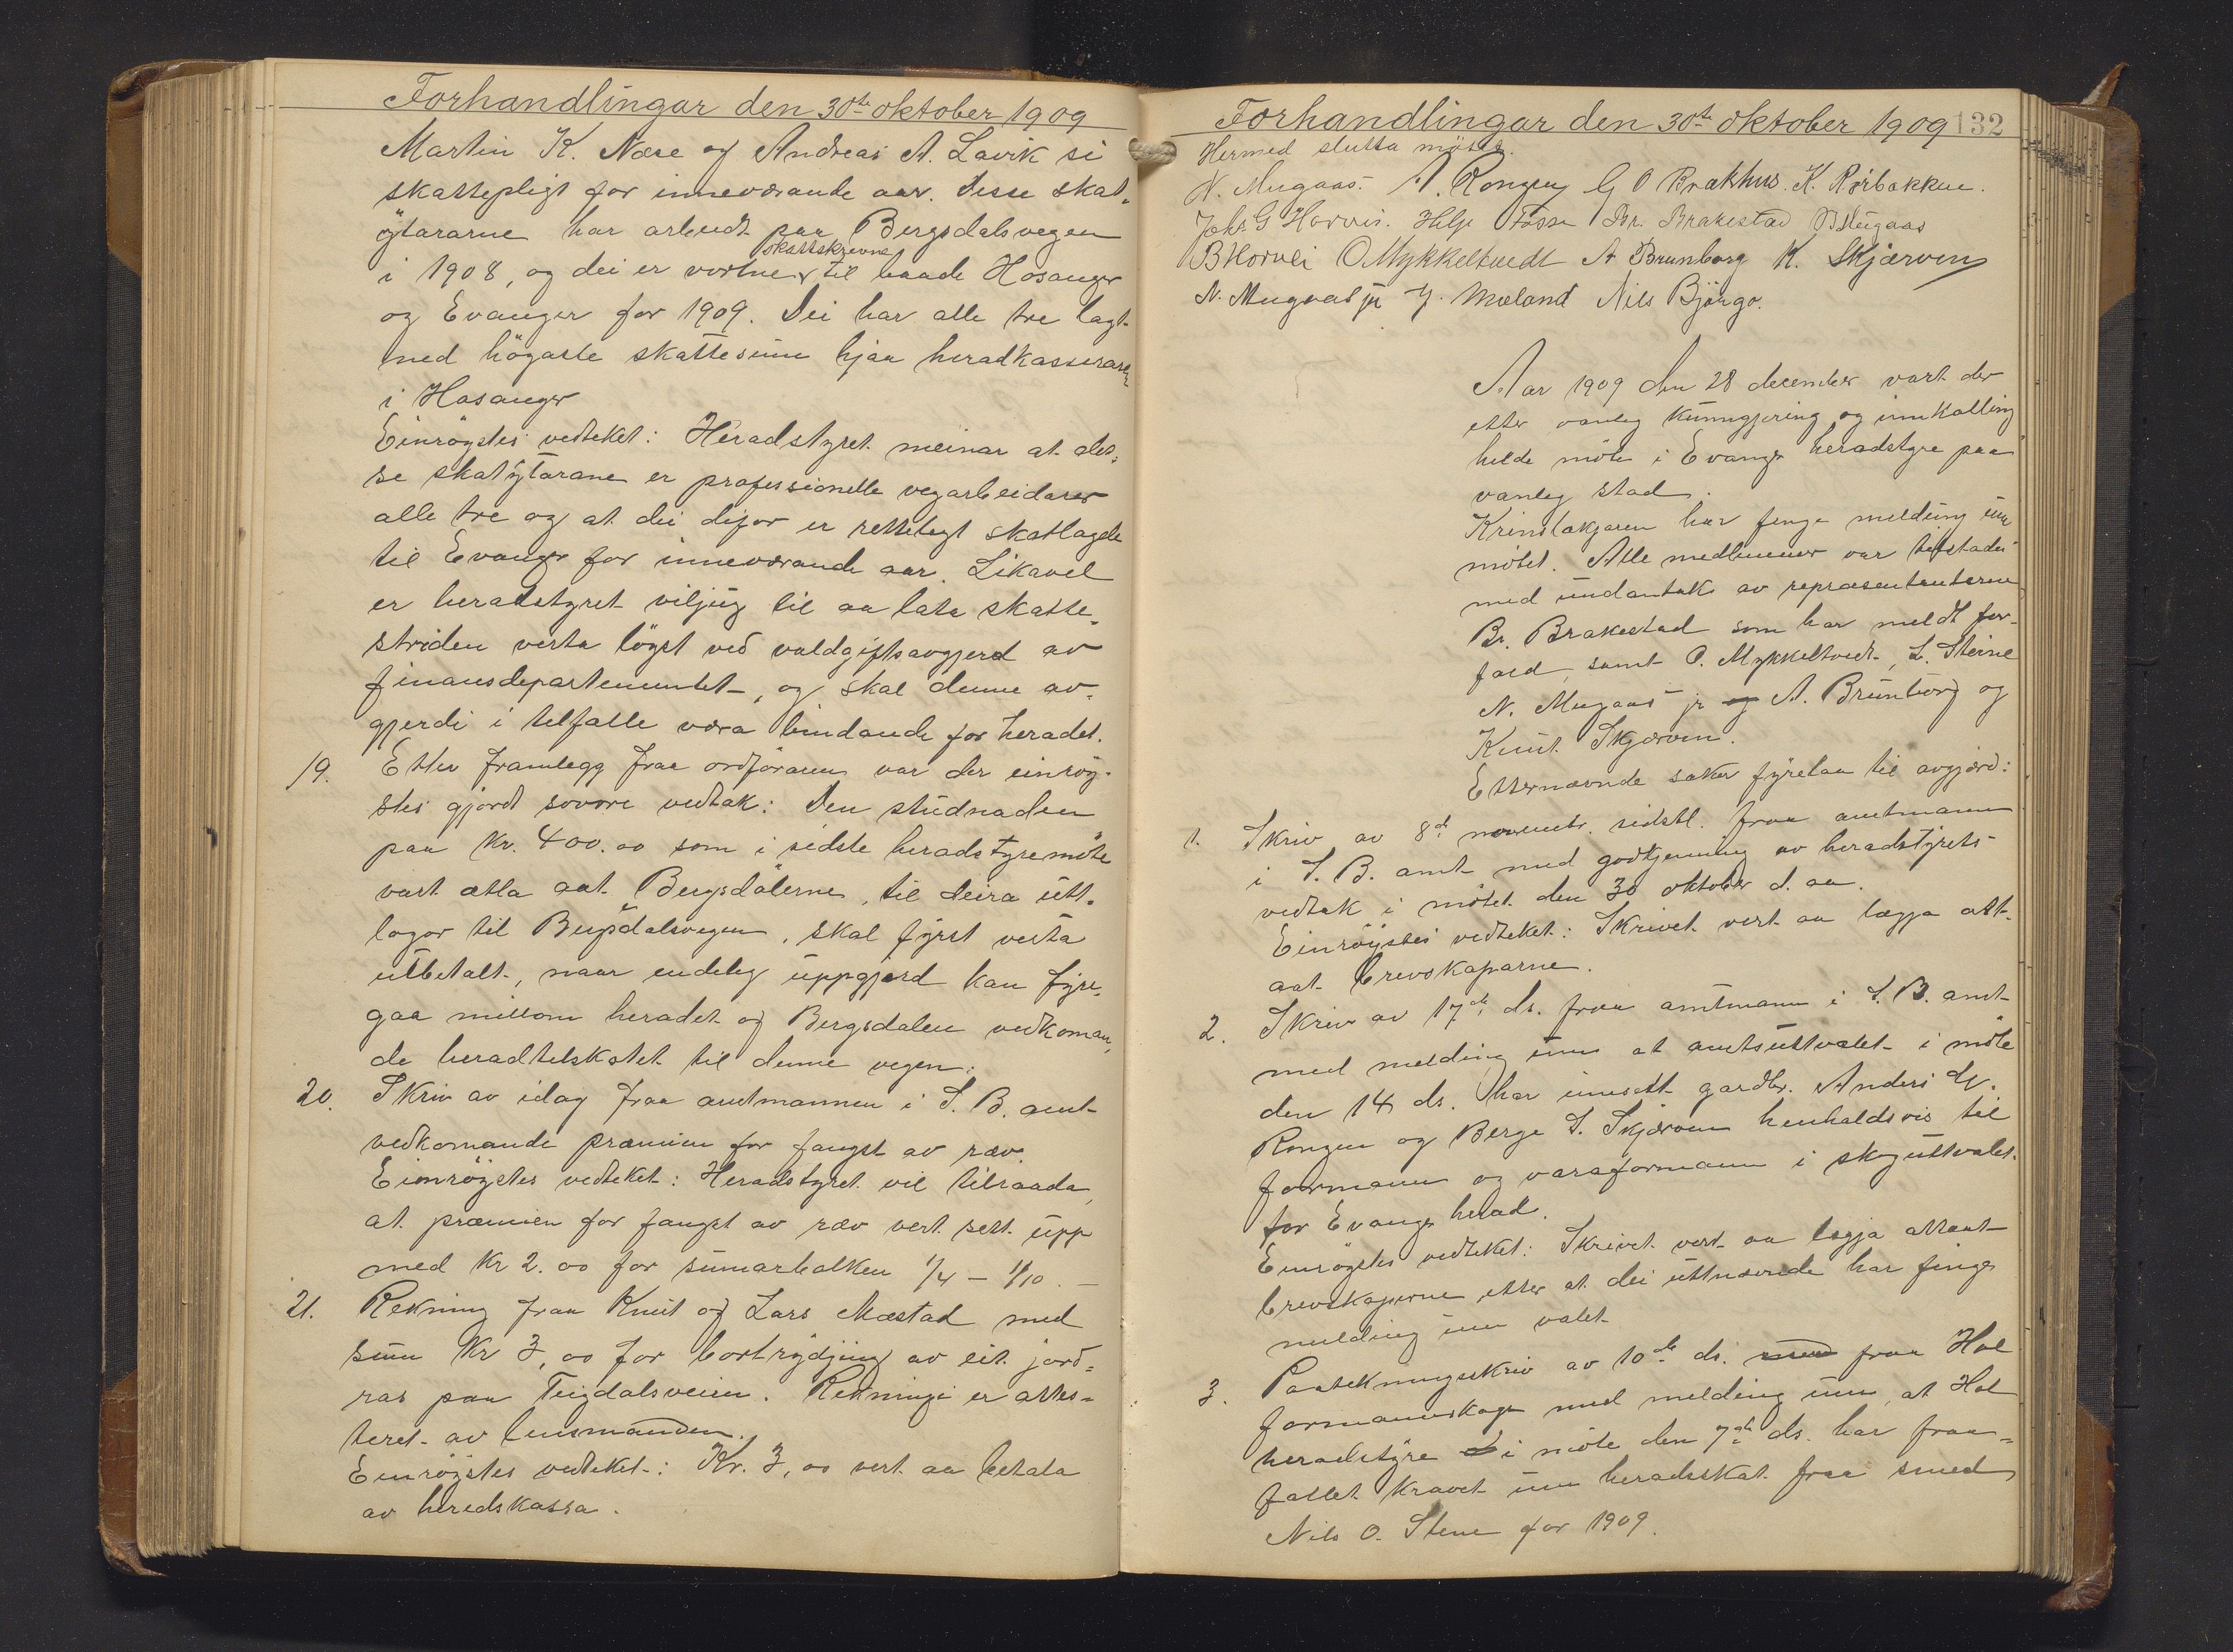 Forhandlingar den 30te oktober 1909
Martin K. Næse og Andreas A. Lavik si
skattepligt for inneværande aar. Desse skat-
ytararne har arbeidt paa Bergsdalsvegen
skattskrevne
i 1908, og dei er vortne til baade Hosanger
og Evanger for 1909. Dei har alle tre lagt
ned högaste skattesum hjaa heradkasseraren
i Hosanger
Einröystes vedteket: Heradstyret meinar at des-
se skatytarane er professionelle vegarbeidarer
alle tre og at dei difor er rettelegt skatlagde
til Evanger for inneværande aar. Likavel
er heradstyret viljug til aa lata skatte-
striden verta löyst ved valdgiftsavgjerd av
finansdepartementet, og skal denne av-
gjerdi i tilfalle væra bindande for heradet.
19. Etter framlegg fraa ordföraren var der einröy-
stes gjordt sovore vedtak: Den studnaden
paa kr. 400.00 som i sidste heradstyremöte
vart ætla aat Bergsdölerne, til deira utt-
logor til Bergsdalsvegen, skal fyrst verta
utbetalt, naar endeleg uppgjerd kan fyre-
gaa millom heradet og Bergsdalen vedkoman-
de heradtilskotet til denne vegen.
20. Skriv av idag fraa amtmannen i S. B. amt
vedkomande præmien for fangst av ræv.
Einröystes vedteket: Heradstyret vil tilraada,
at præmien for fangst av ræv vert sett upp
med kr 2.00 for sumarbolken 1/4 - 1/10. -
21. Rekning fraa Knut og Lars Mæstad med
sum kr 3,00 for bortrydjing av eit jord-
ras paa Teigdalsveien. Rekningi er attes-
teret av lensmanden.
Einröystes vedteket: Kr. 3,00 vert aa betala
av heredskassa.
Forhandlingar den 30te oktober 1909 132
Hermed slutta mötet.
N. Mugaas. A. Rongen G O Brækhus. K. Rörbakken.
Johs G Horvei. Helje Fosse Br. Brakestad B Mugaas
B Horvei O Mykkeltvedt A Brunborg K. Skjærven
N. Mugaas jr Y. Mæland Nils Björgo.
Aar 1909 den 28 december vart der
etter vanleg kunngjering og innkalling
helde möte i Evanger heradstyre paa
vanleg stad.
Krinslækjaren har fenge melding um
mötet. Alle medlemmer var tilstades
med undantak av repræsentanterne
Br. Brakestad som har meldt for-
fald, samt O. Mykkeltvedt, L. Steine
N. Mugaas jr og A. Brunborg og
Knut Skjærven.
Etternævnde saker fyrelaa til avgjerd:
1. Skriv av 8de novembr. sidstl. fraa amtmannen
i S. B. amt med godkjenning av heradstyrets
vedtak i mötet den 30 oktober d. aa.
Einröystes vedteket: Skrivet vert aa lægja att-
aat brevskaparne.
2. Skriv av 17de ds. fraa amtmann i S. B. amt
med melding um at amtsuttvalet i möte
den 14 ds. har innsatt gardbr. Anders W.
Rongen og Berge S. Skjærven henholdsvis til
formann og varaformann i skoguttvalet
for Evanger herad.
Einröystes vedteket: Skrivet vert aa legja attaat
brevskaperne etter at dei uttnemnde har fenge
melding um valet
3. Paateknungsskriv av 10de ds. med fraa Hol
formannskap med melding um, at Hol
heradstyre i möte den 7de ds. har fraa-
fallet kravet um heradsskat fraa smed
Nils O. Stene for 1909.